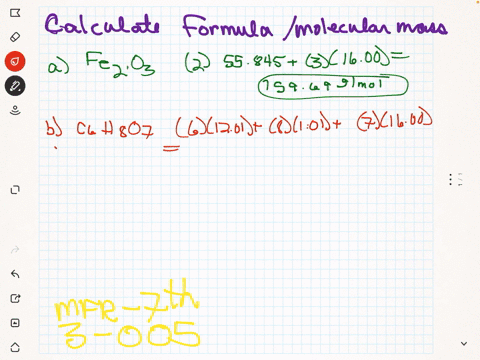 Calculate Formula/molecular mass
a) Fe2O3 (2) 55.845 + (3)(16.00) =
159.69 g/mol
b) C6H8O7 (6)(12.01)+(8)(1.01)+ (7)(16.00)
=
MFR-7th
3-005